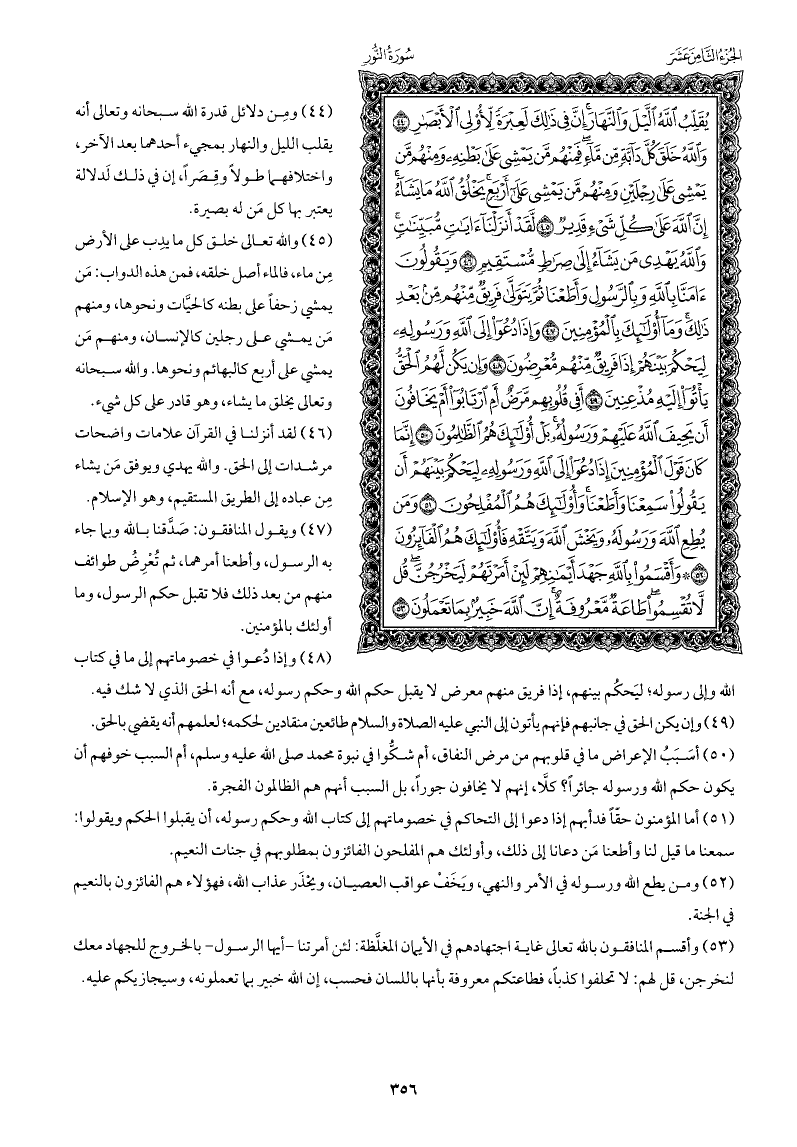 الجزء الثامن عشر
سورة النور
يُقَلِّبُ ٱللَّهُ ٱلَّيۡلَ وَٱلنَّهَارَۚ إِنَّ فِي ذَٰلِكَ لَعِبۡرَةٗ لِّأُوْلِي ٱلۡأَبۡصَٰرِ ٤٤
وَٱللَّهُ خَلَقَ كُلَّ دَآبَّةٖ مِّن مَّآءٖۖ فَمِنۡهُم مَّن يَمۡشِي عَلَىٰ بَطۡنِهِۦ وَمِنۡهُم مَّن
يَمۡشِي عَلَىٰ رِجۡلَيۡنِ وَمِنۡهُم مَّن يَمۡشِي عَلَىٰٓ أَرۡبَعٖۚ يَخۡلُقُ ٱللَّهُ مَا يَشَآءُۚ
إِنَّ ٱللَّهَ عَلَىٰ كُلِّ شَيۡءٖ قَدِيرٞ ٤٥ لَّقَدۡ أَنزَلۡنَآ ءَايَٰتٖ مُّبَيِّنَٰتٖۚ
وَٱللَّهُ يَهۡدِي مَن يَشَآءُ إِلَىٰ صِرَٰطٖ مُّسۡتَقِيمٖ ٤٦ وَيَقُولُونَ
ءَامَنَّا بِٱللَّهِ وَبِٱلرَّسُولِ وَأَطَعۡنَا ثُمَّ يَتَوَلَّىٰ فَرِيقٞ مِّنۡهُم مِّنۢ بَعۡدِ
ذَٰلِكَۚ وَمَآ أُوْلَٰٓئِكَ بِٱلۡمُؤۡمِنِينَ ٤٧ وَإِذَا دُعُوٓاْ إِلَى ٱللَّهِ وَرَسُولِهِۦ
لِيَحۡكُمَ بَيۡنَهُمۡ إِذَا فَرِيقٞ مِّنۡهُم مُّعۡرِضُونَ ٤٨ وَإِن يَكُن لَّهُمُ ٱلۡحَقُّ
يَأۡتُوٓاْ إِلَيۡهِ مُذۡعِنِينَ ٤٩ أَفِي قُلُوبِهِم مَّرَضٌ أَمِ ٱرۡتَابُوٓاْ أَمۡ يَخَافُونَ
أَن يَحِيفَ ٱللَّهُ عَلَيۡهِمۡ وَرَسُولُهُۥۚ بَلۡ أُوْلَٰٓئِكَ هُمُ ٱلظَّٰلِمُونَ ٥٠ إِنَّمَا
كَانَ قَوۡلَ ٱلۡمُؤۡمِنِينَ إِذَا دُعُوٓاْ إِلَى ٱللَّهِ وَرَسُولِهِۦ لِيَحۡكُمَ بَيۡنَهُمۡ أَن
يَقُولُواْ سَمِعۡنَا وَأَطَعۡنَاۚ وَأُوْلَٰٓئِكَ هُمُ ٱلۡمُفۡلِحُونَ ٥١ وَمَن
يُطِعِ ٱللَّهَ وَرَسُولَهُۥ وَيَخۡشَ ٱللَّهَ وَيَتَّقۡهِ فَأُوْلَٰٓئِكَ هُمُ ٱلۡفَآئِزُونَ
٥٢ ۞ وَأَقۡسَمُواْ بِٱللَّهِ جَهۡدَ أَيۡمَٰنِهِمۡ لَئِنۡ أَمَرۡتَهُمۡ لَيَخۡرُجُنَّۖ قُل
لَّا تُقۡسِمُواْۖ طَاعَةٞ مَّعۡرُوفَةٌۚ إِنَّ ٱللَّهَ خَبِيرُۢ بِمَا تَعۡمَلُونَ ٥٣
(٤٤) ومِـن دلائل قدرة الله سـبحانه وتعالى أنه
يقلب الليل والنهار بمجيء أحدهما بعد الآخر،
واختلافهمـا طـولاً وقِـصَراً، إن في ذلـك لَدلالة
يعتبر بها كل مَن له بصيرة.
(٤٥) والله تعـالى خلـق كل ما يدِب على الأرض
مِن ماء، فالماء أصل خلقه، فمن هذه الدواب: مَن
يمشي زحفاً على بطنه كالحيَّات ونحوها، ومنهم
مَن يمـشي عـلى رجلين كالإنسـان، ومنهـم مَن
يمشي على أربع كالبهائم ونحوها. والله سـبحانه
وتعالى يخلق ما يشاء، وهو قادر على كل شيء.
(٤٦) لقد أنزلنـا في القرآن علامات واضحات
مرشـدات إلى الحق. والله يهدي ويوفق مَن يشاء
مِن عباده إلى الطريق المستقيم، وهو الإسلام.
(٤٧) ويقـول المنافقـون: صَدَّقنا بـالله وبما جاء
به الرسـول، وأطعنا أمرهما، ثم تُعْرِضُ طوائف
منهم من بعد ذلك فلا تقبل حكم الرسول، وما
أولئك بالمؤمنين.
(٤٨) وإذا دُعـوا في خصوماتهم إلى ما في كتاب
الله وإلى رسوله؛ ليَحكُم بينهم، إذا فريق منهم معرض لا يقبل حكم الله وحكم رسوله، مع أنه الحق الذي لا شك فيه.
(٤٩) وإن يكن الحق في جانبهم فإنهم يأتون إلى النبي عليه الصلاة والسلام طائعين منقادين لحكمه؛ لعلمهم أنه يقضي بالحق.
(٥٠) أسَبَبُ الإعراض ما في قلوبهم من مرض النفاق، أم شكُّوا في نبوة محمد صلى الله عليه وسلم، أم السبب خوفهم أن
يكون حكم الله ورسوله جائراً؟ كلَّا، إنهم لا يخافون جوراً، بل السبب أنهم هم الظالمون الفجرة.
(٥١) أما المؤمنون حقّاً فدأبهم إذا دعوا إلى التحاكم في خصوماتهم إلى كتاب الله وحكم رسوله، أن يقبلوا الحكم ويقولوا:
سمعنا ما قيل لنا وأطعنا مَن دعانا إلى ذلك، وأولئك هم المفلحون الفائزون بمطلوبهم في جنات النعيم.
(٥٢) ومـن يطع الله ورسـوله في الأمر والنهي، ويَخَفْ عواقب العصيـان، ويحْذَر عذاب الله، فهؤلاء هم الفائزون بالنعيم
في الجنة.
(٥٣) وأقسـم المنافقون بالله تعالى غايـة اجتهادهم في الأيمان المغلَّظة: لئن أمرتنا -أيها الرسول- بالخروج للجهاد معك
لنخرجن، قل لهم: لا تحلفوا كذباً، فطاعتكم معروفة بأنها باللسان فحسب، إن الله خبير بما تعملونه، وسيجازيكم عليه.
٣٥٦